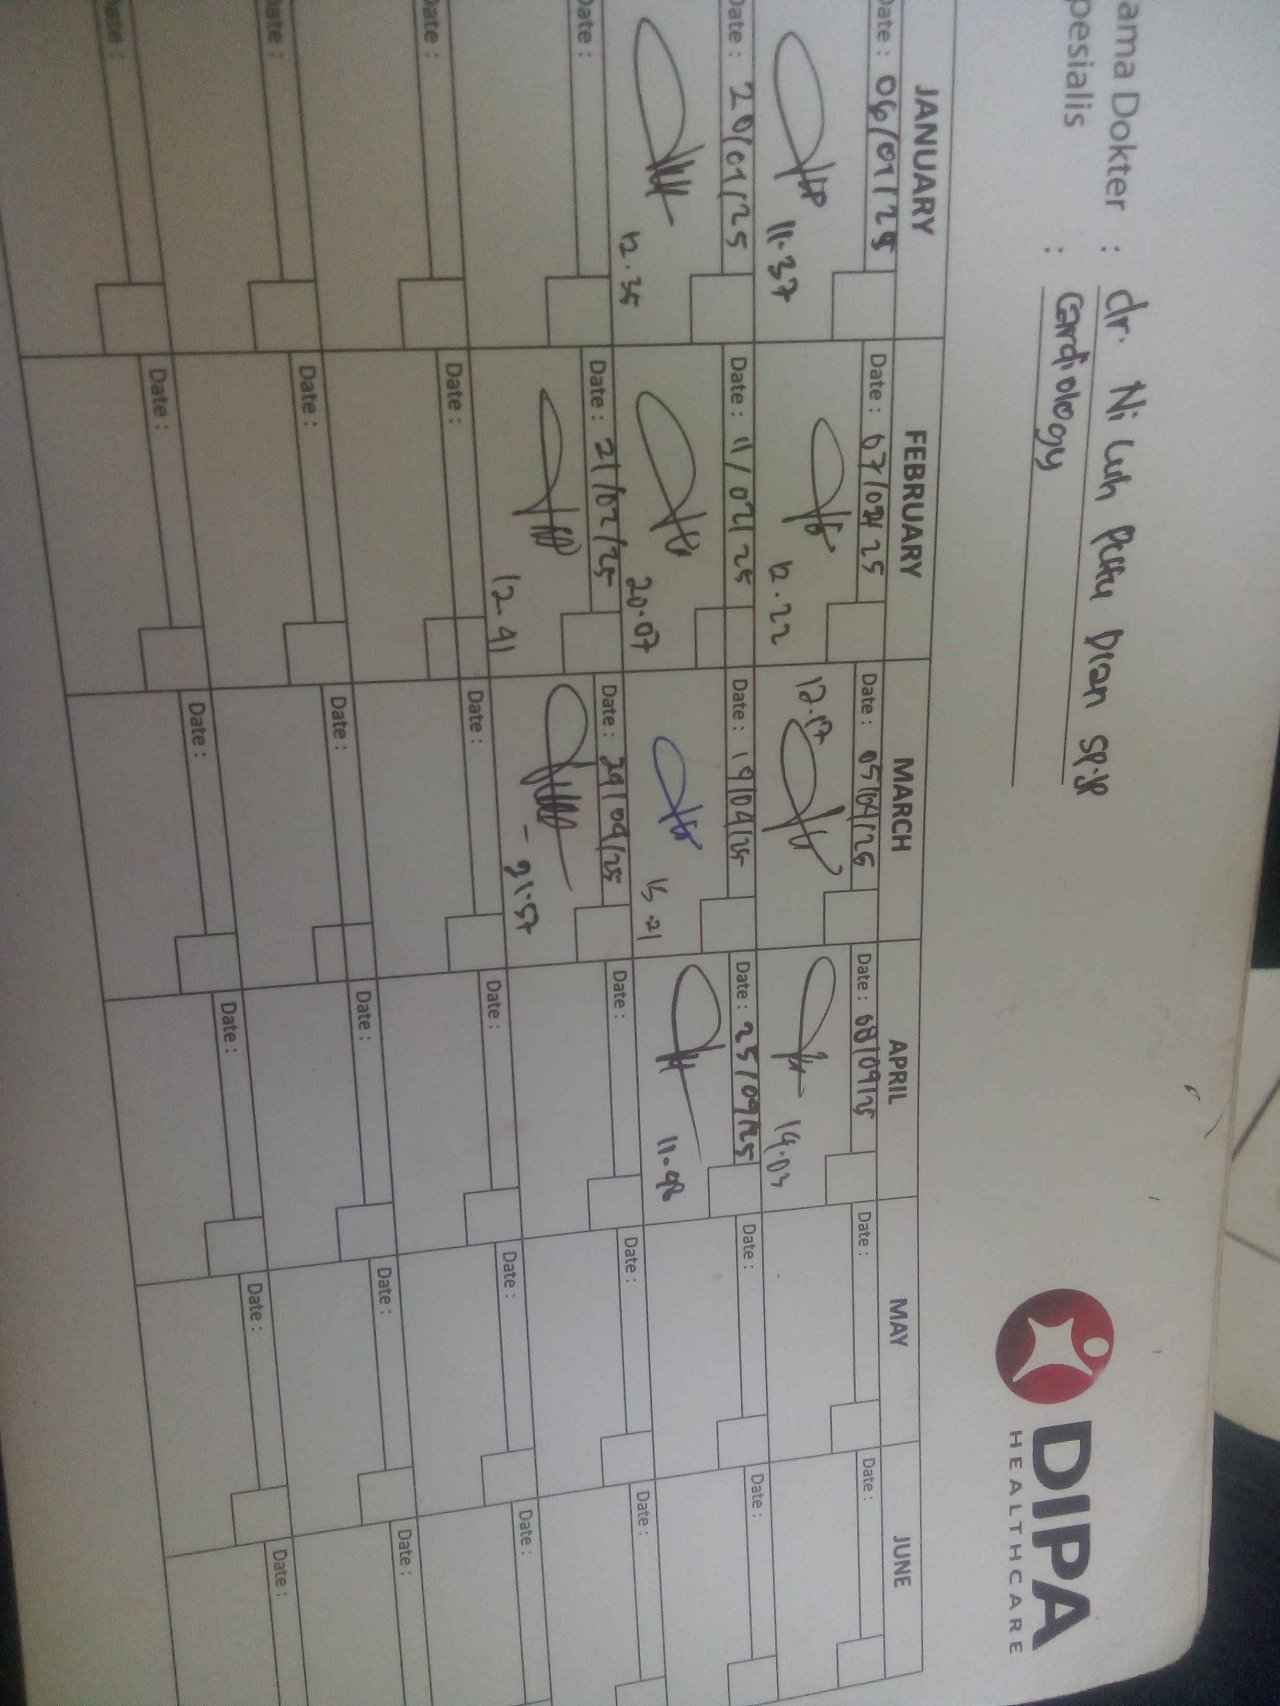 DIPA
HEALTHCARE
ama Dokter : dr. Ni Luh Putu Dian SP.JP
pesialis : Cardiology
JANUARY FEBRUARY MARCH APRIL MAY JUNE
Date : 06/01/25 Date : 07/02/25 Date : 05/04/25 Date : 08/09/25 Date : Date :
11.37 12.22 12.17 14.03
Date : 20/01/25 Date : 11/02/25 Date : 19/04/25 Date : 25/09/25 Date : Date :
12.35 20.07 15.21 11.48
Date : Date : 21/02/25 Date : 29/04/25 Date : Date : Date :
12.41 21.57
Date : Date : Date : Date : Date : Date :
Date : Date : Date : Date : Date : Date :
Date : Date : Date : Date : Date : Date :